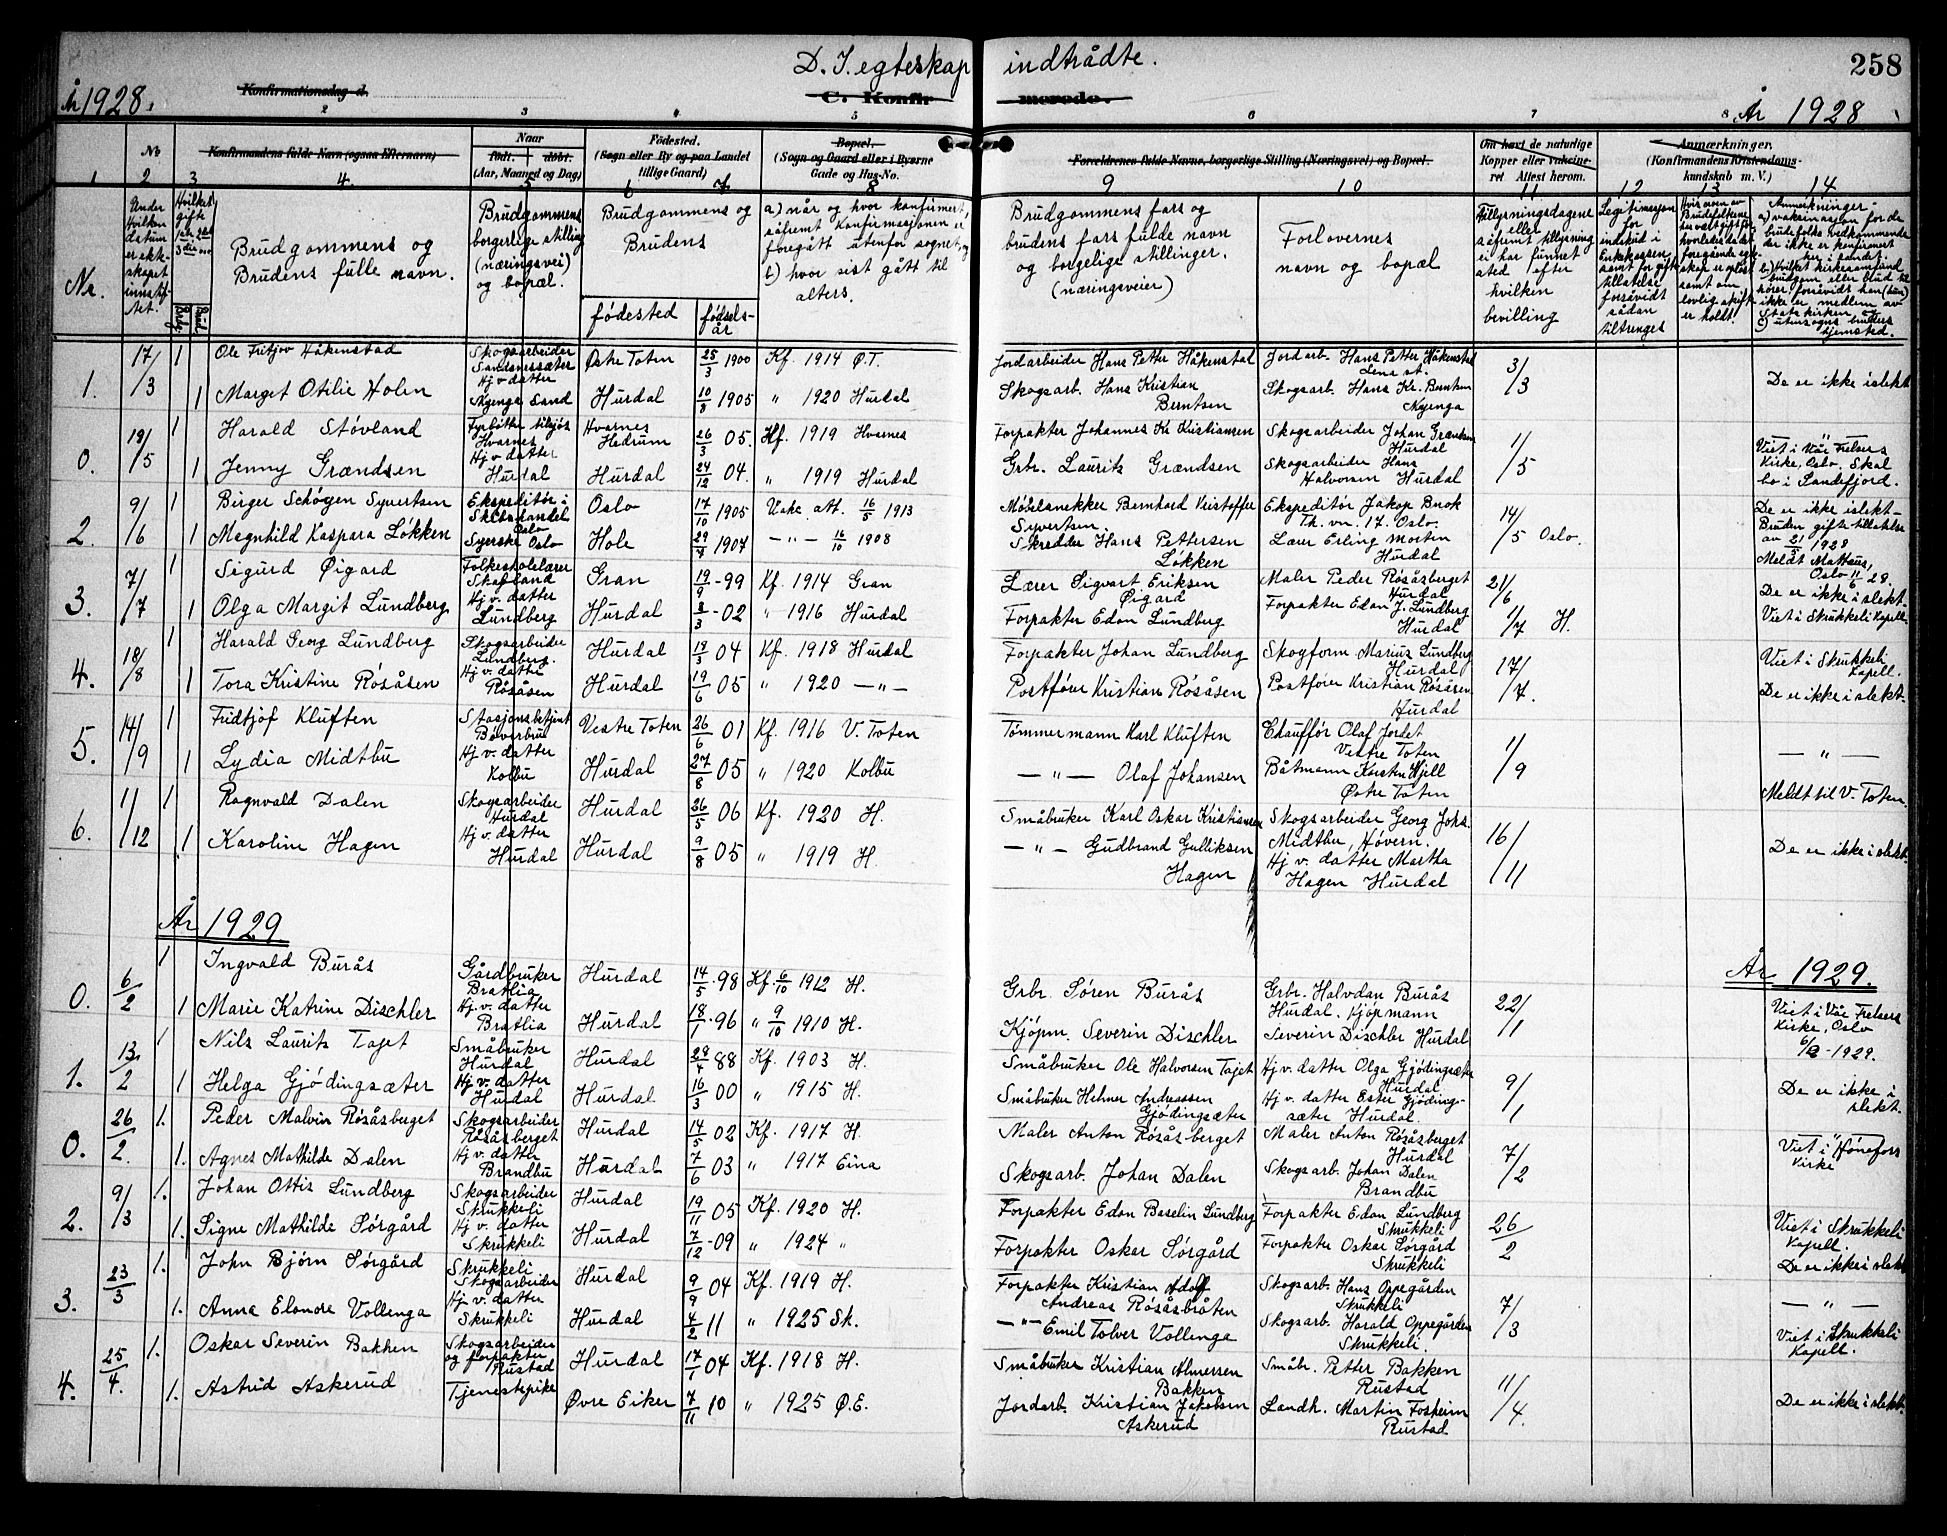 D. I egteskap indtrådte.
258
År 1928.
Konfirmationsdag d.
C. Konfirmerede.
År 1928
No
Konfirmandens fulde Navn (ogsaa Efternavn)
Naar
født. døbt.
(Aar, Maaned og Dag)
Fødested.
(Sogn eller By og paa Landet tillige Gaard)
Bopæl.
(Sogn og Gaard eller i Byerne Gade og Hus-No.
Forældrenes fulde Navne, borgerlige Stilling (Næringsvei) og Bopæl.
Om havt de naturlige Kopper eller vakcineret. Attest herom.
Anmærkninger.
(Konfirmandens Kristendomskundskab m. V.)
1 2 3 4. 5 6 7 8 9 10 11 12 13 14
Nr.
Under hvilken datum er ekteskapet innstiftet.
Brudgommens og
Brudens fulle navn.
Brudgommens
borgerlige stilling
(næringsvei)
og bopæl.
Brudgommens og
Brudens
fødested
fødselsår
a) når og hvor konfirmert,
såfremt Konfirmasjonen er
foregått utenfor sognet, og
b) hvor sist gått til
alters.
Brudgommens fars og
brudens fars fulde navn
og borgelige stillinger.
(næringsveier)
Forlovernes
navn og bopæl
Tillysningsdagene
eller
såfremt tillysning
ei har funnet
sted efter
hvilken
bevilling
Legitimasjon
for
indskud i
Enkekassen
samt for gifte
tillatelse
forsåvidt
sådan
tiltrenges
Anmerkninger
a) vaksinasjon for de
brudefolks vedkommende
der ikke er konfirmert
her i landet.
1. 17/3 1 Ole Fritjov Håkenstad Skogsarbeider Sandsnessæter Østre Toten 25/3 1900 Kf. 1914 Ø.T. Jordarbeider Hans Petter Håkenstad Jordarb. Hans Petter Håkenstad Lena st. 3/3
1 Marget Otilie Holm Hj v datter Nyenga Sand Hurdal 10/8 1905 " 1920 Hurdal Skogsarb. Hans Kristian Berntsen Skogsarb. Hans Kr. Berntsen Nyenga De er ikke i slekt
0. 19/5 1 Harald Støvland Fyrbøter tilsjøs Hvarnes Hvarnes Hedrum 26/3 05. Kf. 1919 Hvarnes Forpakter Johannes Kr Kristiansen Skogsarbeider Johan Grændsen Hurdal 1/5
1 Jenny Grændsen Hj v datter Hurdal Hurdal 24/12 04. " 1919 Hurdal Grbr. Lauritz Grændsen Skogsarbeider Hans Halvorsen Hurdal Viet i Vår Frelsers Kirke, Oslo. Skal bo i Sandefjord.
2. 9/6 1 Birger Schøgen Syvertsen Ekspeditør i Skibshandel Oslo Oslo 17/10 1905 Vakc. att. 16/5 1913 Møbelsnekker Bernhard Kristoffer Syvertsen. Ekspeditør Jakop Buok Th. vn. 17. Oslo. 14/5 Oslo.
1 Magnhild Kaspara Løkken Syerske Oslo Hole 29/7 1907 —"— 16/10 1908 Skredder Hans Pettersen Løkken Lærer Erling Morten Hurdal De er ikke i slekt- Bruden gifte tillatelse av 21/5 1928 Meldt Matteus, Oslo 11/6 28.
3. 7/7 1 Sigurd Øigard Folkeskolelærer Skafland Gran 19/9 -99 Kf. 1914 Gran Lærer Sigvart Eriksen Øigard Maler Peder Røsåsberget Hurdal 21/6
1 Olga Margit Lundberg Hj v. datter Lundberg Hurdal 8/3 -02 " 1916 Hurdal Forpakter Edon Lundberg Forpakter Edon J. Lundberg Hurdal 1/7 H. De er ikke i slekt- Viet i Skrukkeli Kapell.
4. 18/8 1 Harald Georg Lundberg Skogsarbeider Lundberg. Hurdal 19/3 04 Kf. 1918 Hurdal Forpakter Johan Lundberg Skogform Marius Lundberg Hurdal 17/7.
1 Tora Kristine Røsåsen Hj v. datter Røsåsen Hurdal 19/6 05 " 1920 —"— Postfører Kristian Røsåsen Postfører Kristian Røsåsen Hurdal Viet i Skrukkeli Kapell. De er ikke i slekt-
5. 14/9 1 Fridtjof Kluften Stasjonsbetjent Bøverbru Vestre Toten 26/6 01 Kf. 1916 V. Toten Tømmermann Karl Kluften Chauffør Olaf Jordet Vestre Toten 1/9
1 Lydia Midtbu Hj v. datter Kolbu Hurdal 27/8 05 " 1920 Kolbu —"— Olaf Johansen Båtmann Karsten Hjell Østre Toten —"— Meldt til V. Toten.
6. 1/12 1 Ragnvald Dalen Skogsarbeider Hurdal Hurdal 26/5 06 Kf. 1920 H. Småbruker Karl Oskar Kristiansen Skogsarbeider Georg Johs. Midtbu, Høvern. 16/11
1 Karoline Hagen Hj v. datter Hurdal Hurdal 9/8 05 " 1919 H. —"— Gudbrand Gulliksen Hagen Hj v. datter Martha Hagen Hurdal De er ikke i slekt.
År 1929
År 1929.
0. 6/2 1 Ingvald Burås Gårdbruker Bratlia Hurdal 14/5 -98 Kf. 6/10 1912 H. Grbr. Søren Burås Grbr. Halvdan Burås Hurdal. 22/1
1 Marie Katrine Dischler Hj. v. datter Bratlia Hurdal 18/1 -96 " 9/10 1910 H. Kjøpm. Severin Dischler Kjøpmann Severin Dischler Hurdal Viet i Vår Frelsers Kirke, Oslo 6/2-1929.
1. 13/2 1 Nils Lauritz Tajet Småbruker Hurdal Hurdal 29/4 88 Kf. 1903 H. Småbruker Ole Halvorsen Tajet Hj v. datter Olga Gjødingsæter Hurdal 9/1
1 Helga Gjødingsæter Hj v. datter Hurdal Hurdal 16/3 00 " 1915 H. Småbruker Helmer Andreassen Gjødingsæter Hj v. datter Ester Gjødingsæter Hurdal. De er ikke i slekt.
0. 26/2. 1. Peder Malvin Røsåsberget Skogsarbeider Røsåsberget Hurdal 14/5 02 Kf. 1917 H. Maler Anton Røsåsberget Maler Anton Røsåsberget Hurdal 7/2
1. Agnes Mathilde Dalen Hj v. datter Brandbu Hurdal 7/6 03 " 1917 Eina Skogsarb. Johan Dalen Skogsarb. Johan Dalen Brandbu Viet i Hønefoss Kirke
2. 9/3 1. Johan Ottis Lundberg Skogsarbeider Skrukkeli Hurdal 19/11 05 Kf. 1920 H. Forpakter Edon Baselin Lundberg Forpakter Edon Lundberg Skrukkeli 26/2
1. Signe Mathilde Sørgård Hj v. datter Skrukkeli Hurdal 7/12 -09 " 1924 " Forpakter Oskar Sørgård Forpakter Oskar Sørgård Skrukkeli Viet i Skrukkeli Kapell. De er ikke i slekt
3. 23/3 1. John Bjørn Sørgård Skrukkeli Skogsarbeider Hurdal 9/9 04 Kf. 1919 H. Forpakter Kristian Adolf Andreas Røsåsbråten Skogsarb. Hans Oppegården Skrukkeli 7/3
1. Anna Elondre Vollenga Hj. v. datter Skrukkeli Hurdal 4/2 11 " 1925 Sk. —"— Emil Tolver Vollenga Skogsarb. Harald Oppegården Skrukkeli. —"— Viet i Skrukkeli Kapell.
4. 25/4. 1. Oskar Severin Bakken Skogsarbeider og forpakter Rustad Hurdal 17/1 04 Kf. 1918 H. Småbruker Kristian Almersen Bakken Småbr. Petter Bakken Rustad 11/4.
1. Astrid Askerud Tjenestepike Øvre Eiker 7/11 10 " 1925 Ø.E. Jordarb. Kristian Jakobsen Askerud Landh. Martin Fosheim Rustad De er ikke i slekt.